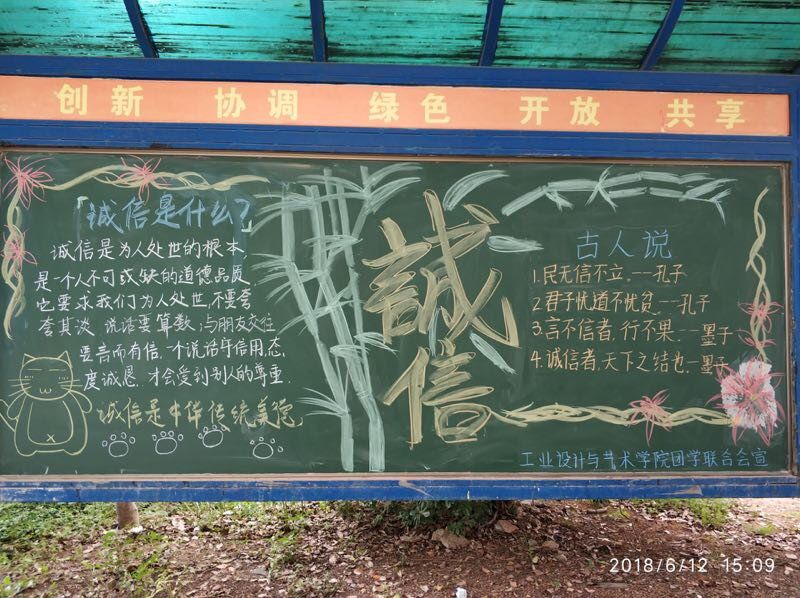 创新 协调 绿色 开放 共享
诚信是什么?
诚信是为人处世的根本.
是一个人不可或缺的道德品质.
它要求我们为人处世,不要
其谈,说话要算数,与朋友交往
要言而有信.一个说话年信用,态
度诚恳,才会受到别人的尊重.
诚信是中华传统美德
誠信
古人说
1.民无信不立.——孔子
2.君子忧道不忧贫.——孔子
3.言不信者,行不果.——墨子
4.诚信者,天下之结也.——墨子
工业设计与艺术学院团学联合会宣
2018/6/12 15:09